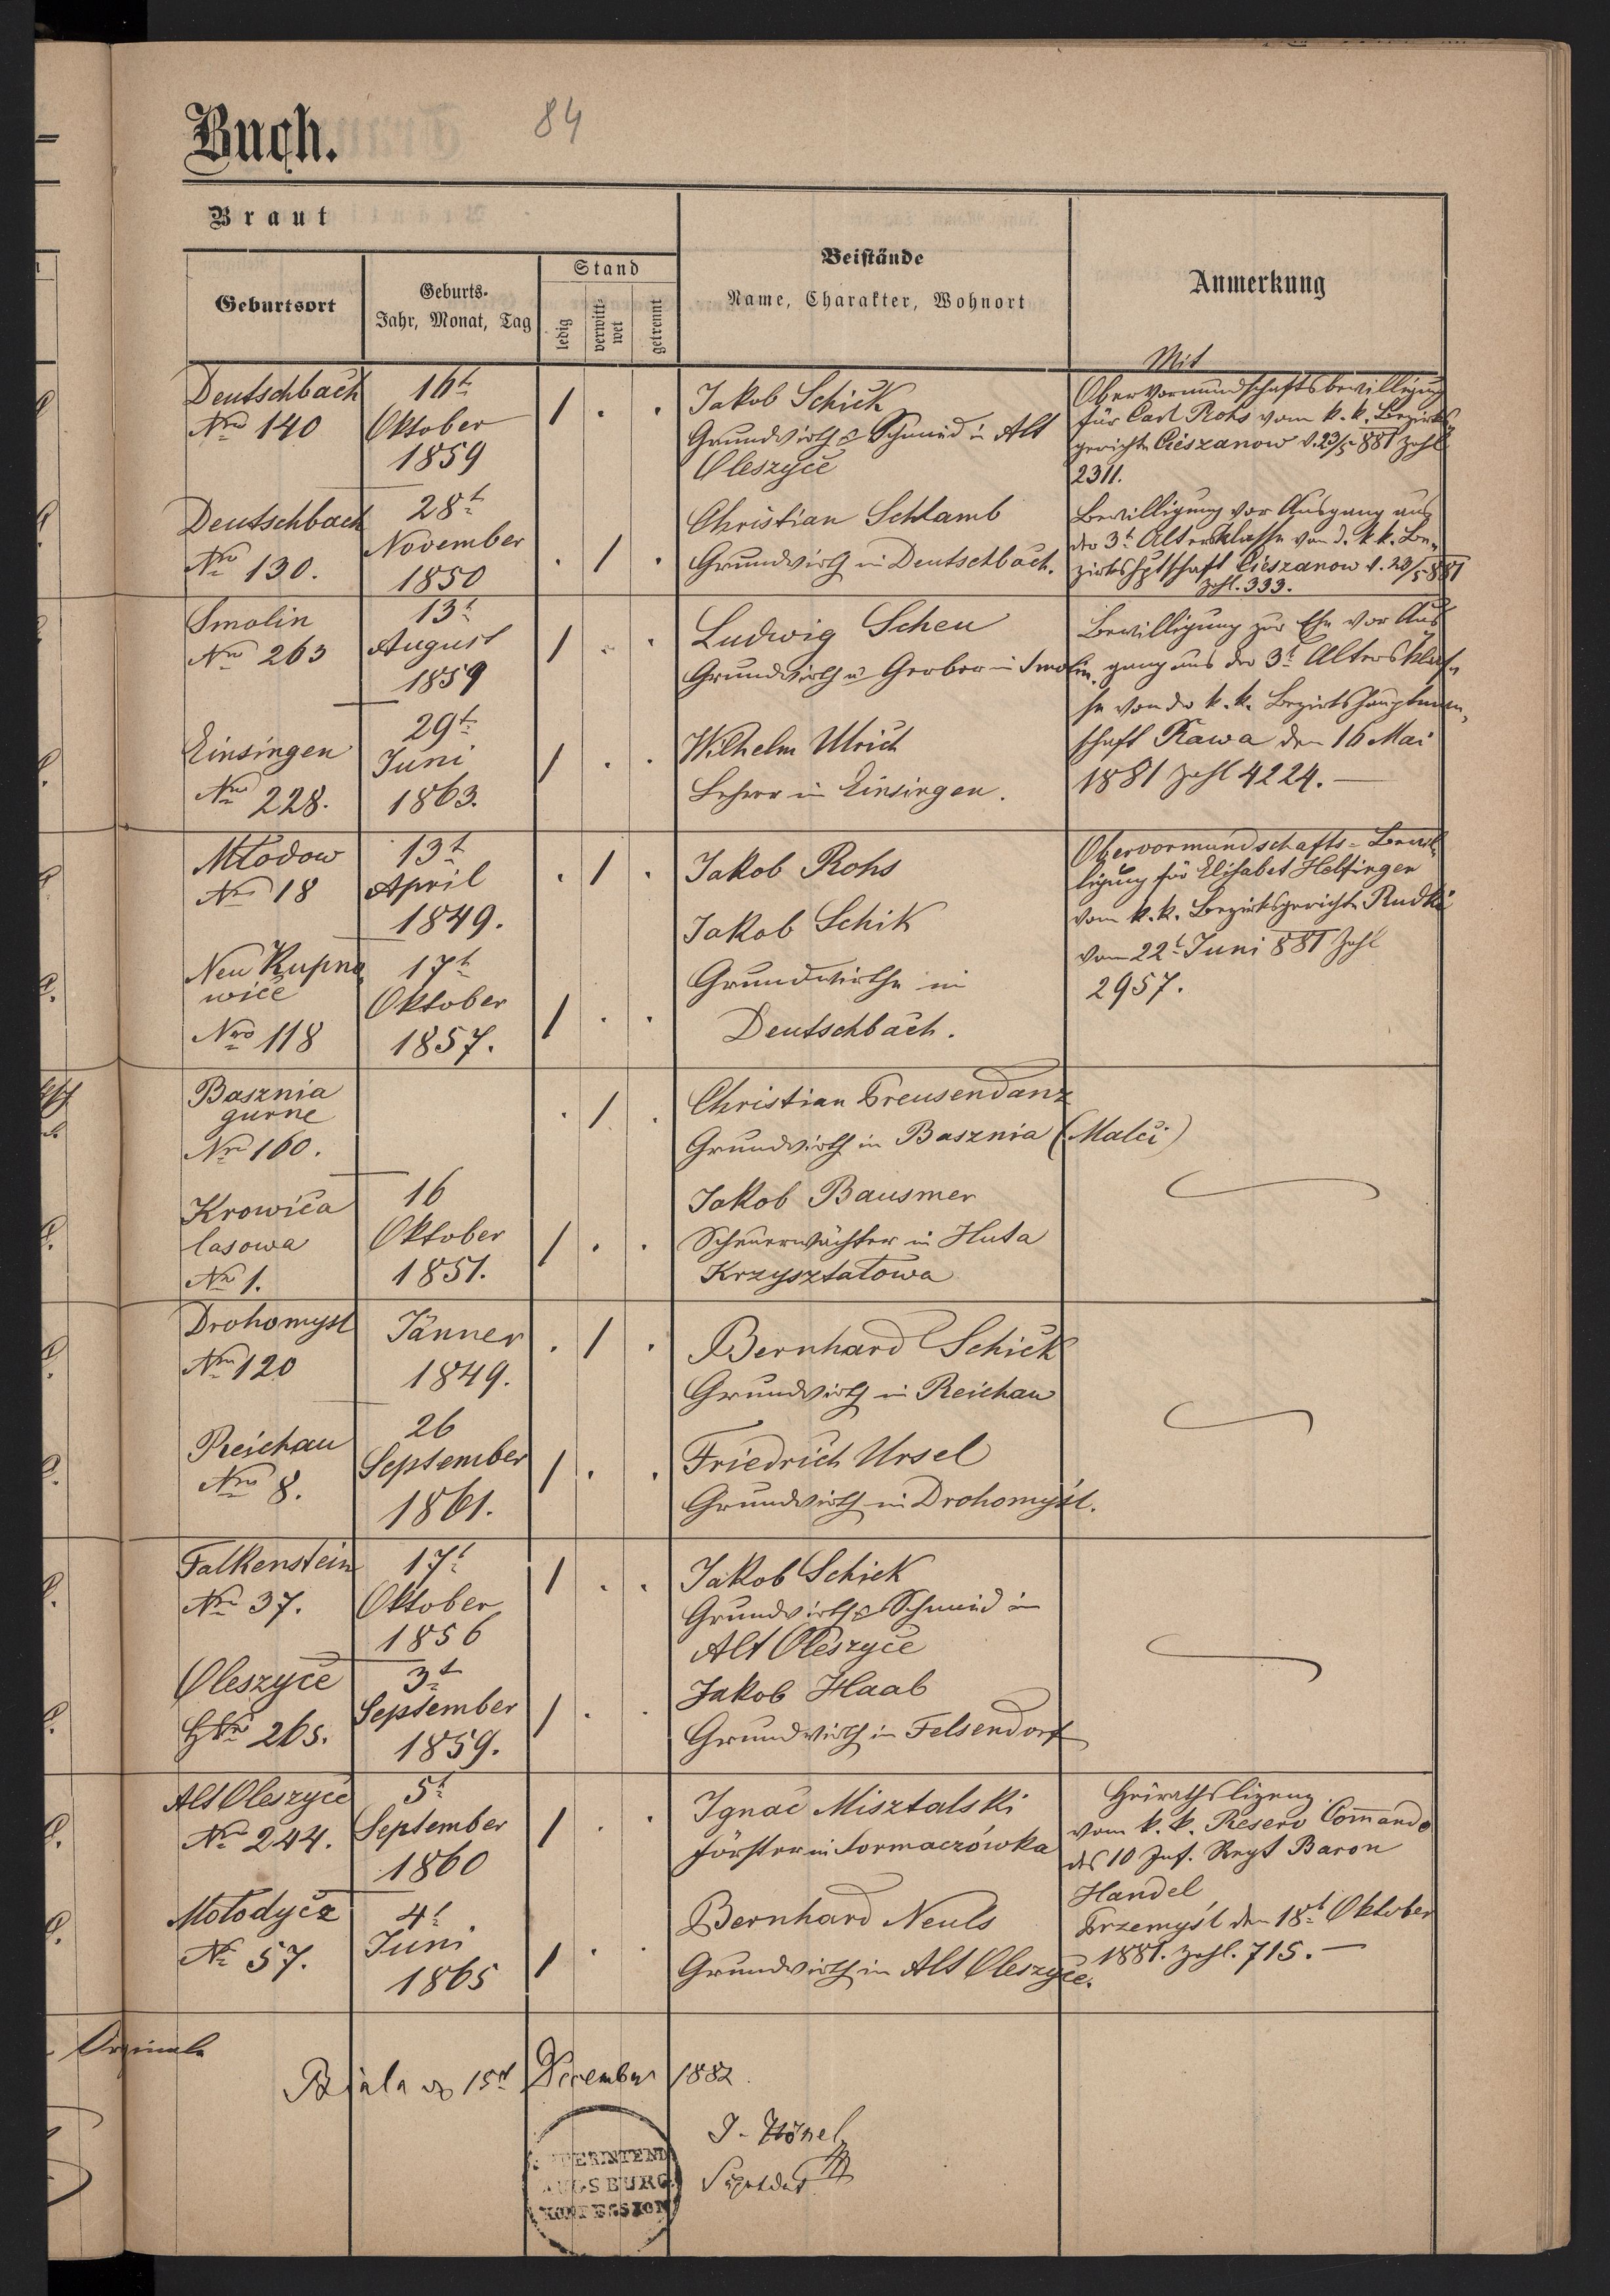 Buch.
84
Braut
Geburtsort
Geburts-
Jahr, Monat, Tag
Stand
ledig
verwitt-
wet
getrennt
Beistände
Name, Charakter, Wohnort
Anmerkung
Deutschbach
Nro 140
16t
Oktober
1859
1 . .
Jakob Schick
Grundwirth & Schmied in Alt
Oleszyce
Mit
Obervormundschaftsbewilligung
für Carl Rohs vom k. k. Bezirks
gerichte Cieszanow d. 23/5 881 Zahl
2311.
Deutschbach
Nro 130.
28t
November
1850
. 1 .
Christian Schlamb
Grundwirth in Deutschbach.
Bewilligung vor Ausgang aus
der 3t Altersklasse von d. k. k. Be-
zirkshptschaft Cieszanow d. 23/5 881
Zahl. 333.
Smolin
Nro 263
13t
August
1859
1 . .
Ludwig Scheu
Grundwirth u Gerber in Smolin.
Bewilligung zur Ehe vor Aus
gang aus der 3t Altersklas-
se von der k. k. Bezirkshauptman-
schaft Rawa den 16 Mai
1881 Zahl 4224. —
Einsingen
Nro 228.
29t
Juni
1863.
1 . .
Wilhelm Ulrich
Lehrer in Einsingen.
Młodow
Nro 18
13t
April
1849.
. 1 .
Jakob Rohs
Jakob Schik
Grundwirthe in
Deutschbach.
Obervormundschafts-Bewil-
ligung für Elisabet Helfinger
vom k. k. Bezirksgerichte Rudki
vom 22t Juni 881 Zahl
2957.
Neu Kupno
wice
Nro 118
17t
Oktober
1857.
1 . .
Basznia
gurne
Nro 160.
. 1 .
Christian Preusendanz
Grundwirth in Basznia (Malci)
Krowica
lasowa
Nro 1.
16
Oktober
1851.
1 . .
Jakob Bausmer
Scheuerwächter in Huta
Krzyształowa
Drohomysl
Nro 120
Jänner
1849.
. 1 .
Bernhard Schick
Grundwirth in Reichau
Reichau
Nro 8.
26
September
1861.
1 . .
Friedrich Ursel
Grundwirth in Drohomyśl.
Falkenstein
Nro 37.
17t
Oktober
1856
1 . .
Jakob Schick
Grundwirth & Schmied in
Alt Oleszyce
Oleszyce
265.
3t
September
1859.
1 . .
Jakob Haab
Grundwirth in Felsendorf
Alt Oleszyce
Nro 244.
5t
September
1860
1 . .
Ignac Misztalski
Förster in Sormaczówka
Heirathslizenz
vom k. k. Reserv Commando
des 10 Inf. Regt Baron
Handel
Przemyśl den 18t Oktober
1881. Zahl. 715. —
Mołodycz
Nr 57.
4t
Juni
1865
1 . .
Bernhard Neuls
Grundwirth in Alt Oleszyce.
Originale
Biala 15t December 1882.
J. Hönel
SUPERINTEND
AUGSBURG
KONFESSION